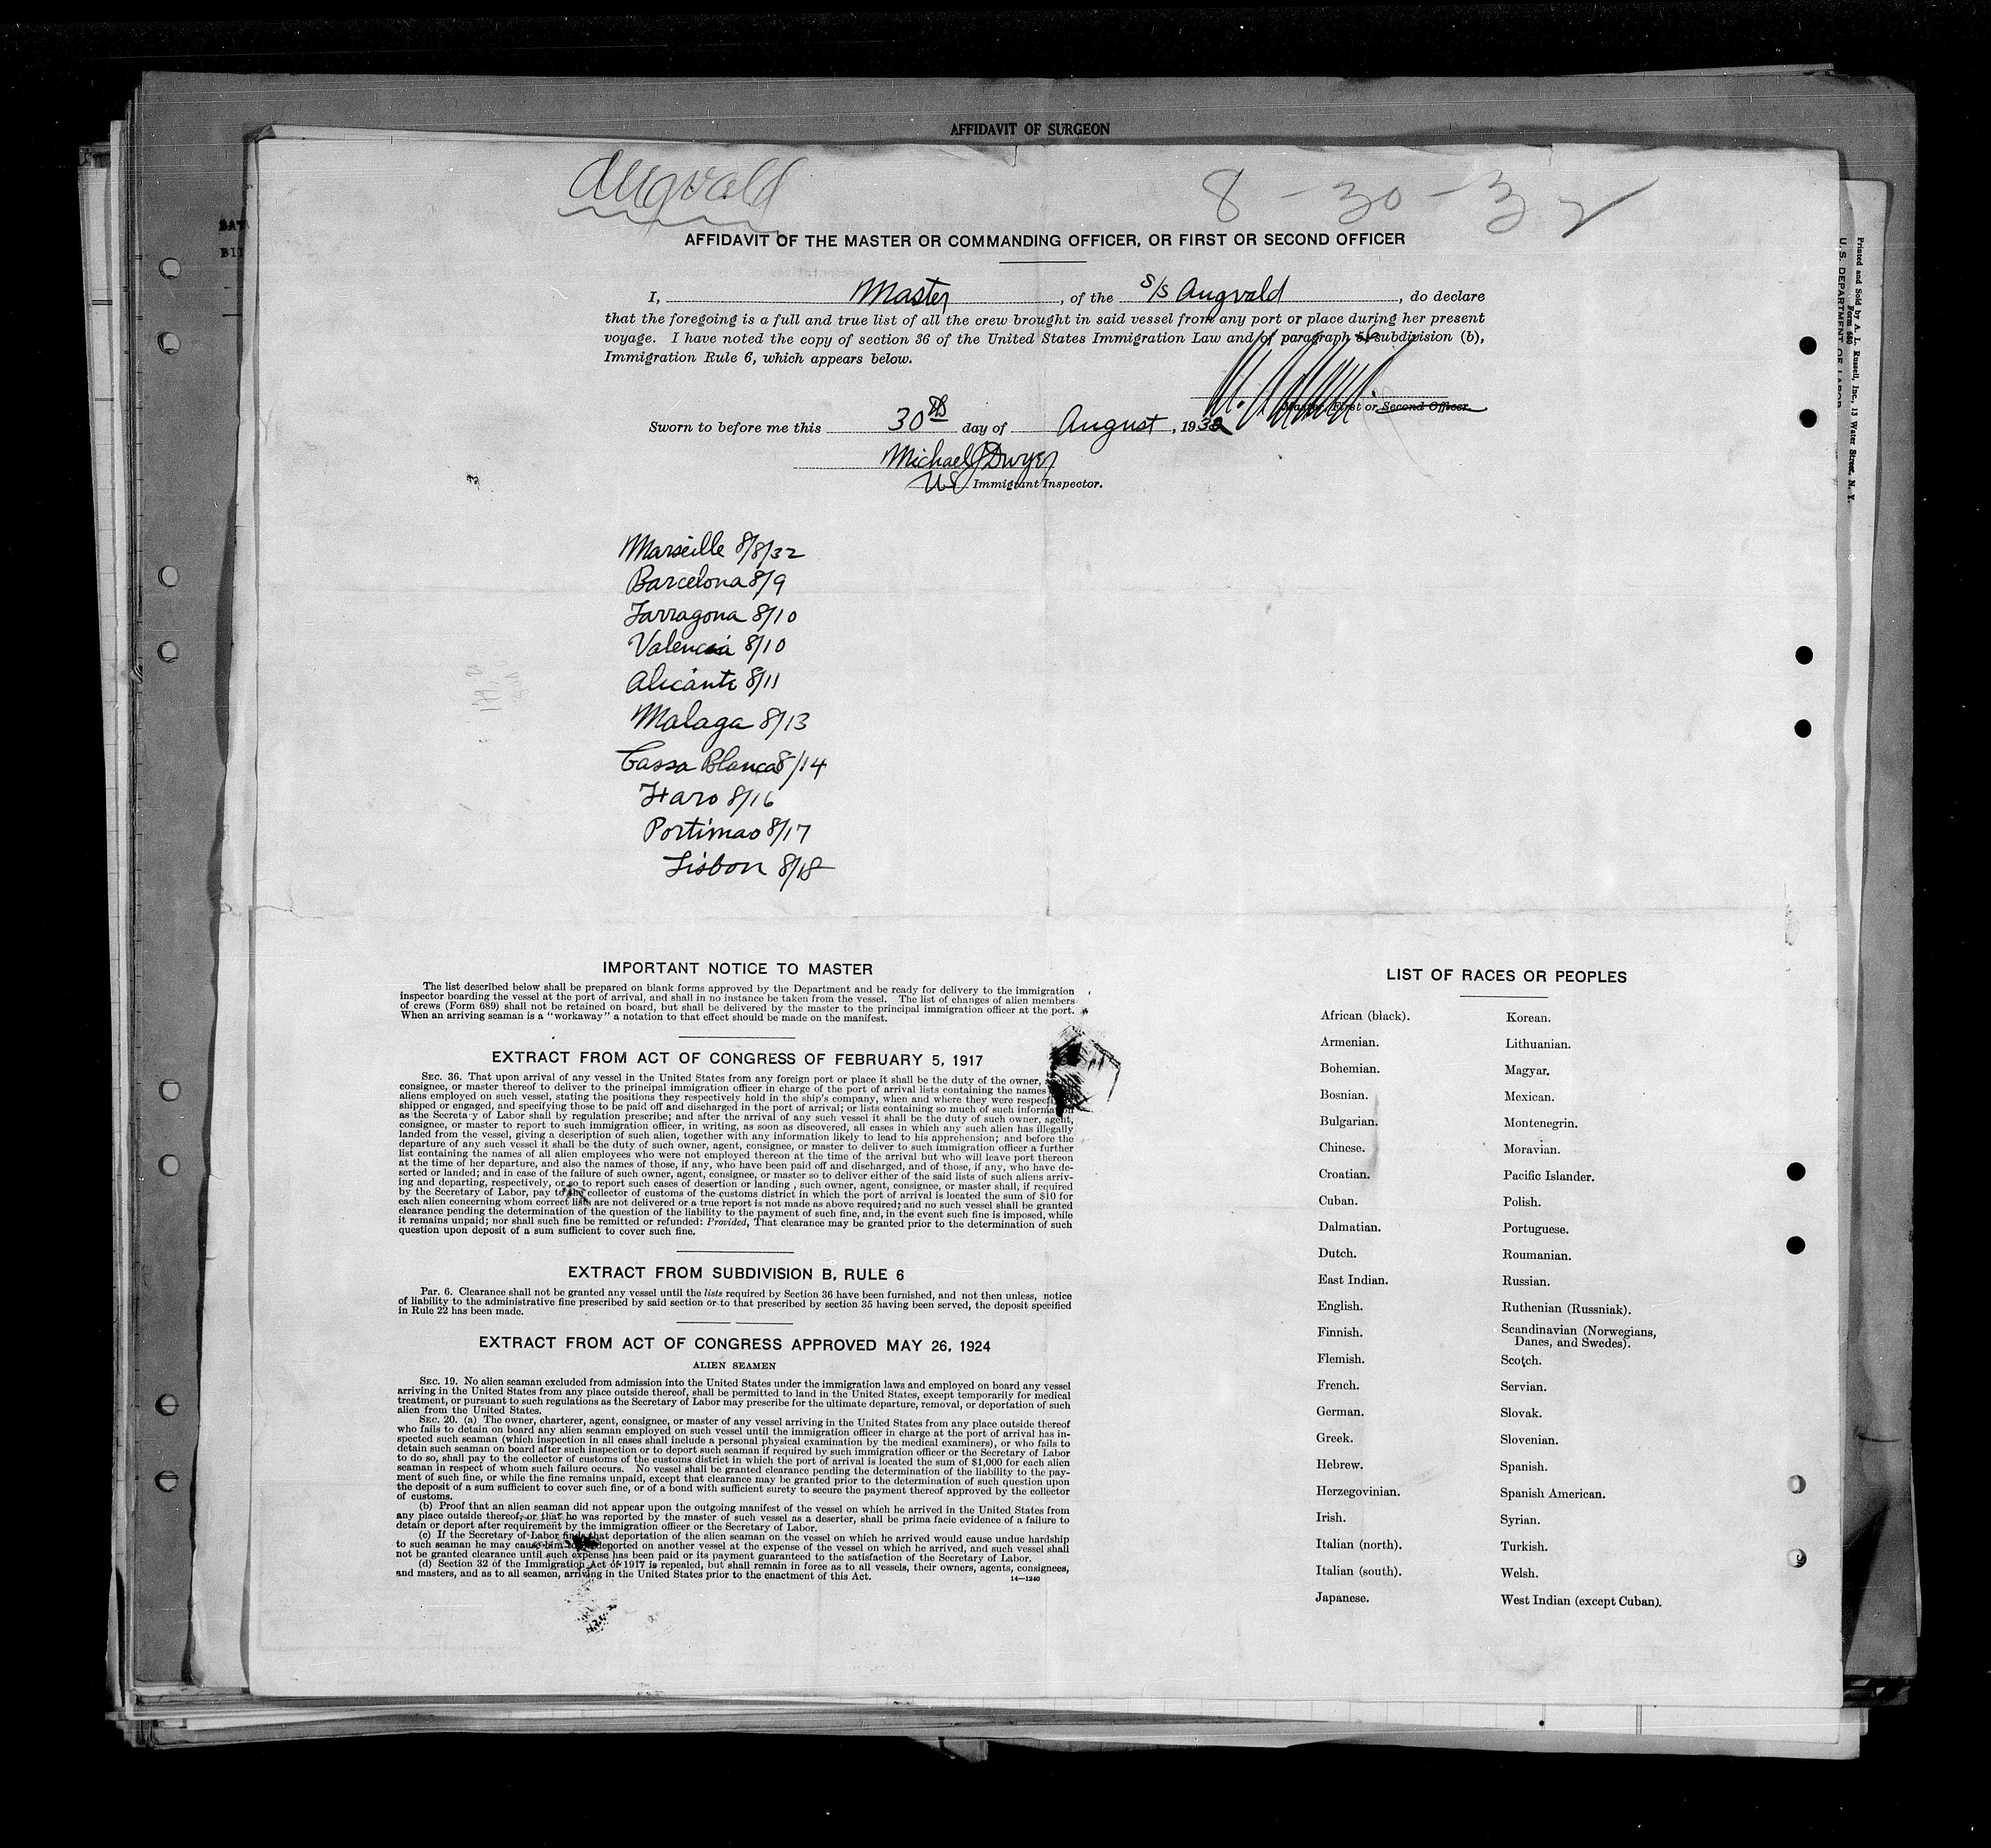 AFFIDAVIT OF SURGEON
Augvald 8-30-32
AFFIDAVIT OF THE MASTER OR COMMANDING OFFICER, OR FIRST OR SECOND OFFICER
I, Master, of the S/S Augvald, do declare
that the foregoing is a full and true list of all the crew brought in said vessel from any port or place during her present
voyage. I have noted the copy of section 36 of the United States Immigration Law and of paragraph 6 subdivision (b),
Immigration Rule 6, which appears below.
Master, First or Second Officer.
Sworn to before me this 30th day of August, 1932
Michael J Dwyer
US Immigrant Inspector.
Marseille 8/8/32
Barcelona 8/9
Tarragona 8/10
Valencia 8/10
Alicante 8/11
Malaga 8/13
Cassa Blanca 8/14
Faro 8/16
Portimao 8/17
Lisbon 8/18
IMPORTANT NOTICE TO MASTER
The list described below shall be prepared on blank forms approved by the Department and be ready for delivery to the immigration
inspector boarding the vessel at the port of arrival, and shall in no instance be taken from the vessel. The list of changes of alien members
of crews (Form 689) shall not be retained on board, but shall be delivered by the master to the principal immigration officer at the port.
When an arriving seaman is a "workaway" a notation to that effect should be made on the manifest.
EXTRACT FROM ACT OF CONGRESS OF FEBRUARY 5, 1917
SEC. 36. That upon arrival of any vessel in the United States from any foreign port or place it shall be the duty of the owner,
consignee, or master thereof to deliver to the principal immigration officer in charge of the port of arrival lists containing the names
aliens employed on such vessel, stating the positions they respectively hold in the ship's company, when and where they were respectively
shipped or engaged, and specifying those to be paid off and discharged in the port of arrival; or lists containing so much of such information
as the Secretary of Labor shall by regulation prescribe; and after the arrival of any such vessel it shall be the duty of such owner, agent,
consignee, or master to report to such immigration officer, in writing, as soon as discovered, all cases in which any such alien has illegally
landed from the vessel, giving a description of such alien, together with any information likely to lead to his apprehension; and before the
departure of any such vessel it shall be the duty of such owner, agent, consignee, or master to deliver to such immigration officer a further
list containing the names of all alien employees who were not employed thereon at the time of the arrival but who will leave port thereon
at the time of her departure, and also the names of those, if any, who have been paid off and discharged, and of those, if any, who have de-
serted or landed; and in case of the failure of such owner, agent, consignee, or master so to deliver either of the said lists of such aliens arriv-
ing and departing, respectively, or so to report such cases of desertion or landing, such owner, agent, consignee, or master shall, if required
by the Secretary of Labor, pay to the collector of customs of the customs district in which the port of arrival is located the sum of $10 for
each alien concerning whom correct lists are not delivered or a true report is not made as above required; and no such vessel shall be granted
clearance pending the determination of the question of the liability to the payment of such fine, and, in the event such fine is imposed, while
it remains unpaid; nor shall such fine be remitted or refunded: Provided, That clearance may be granted prior to the determination of such
question upon deposit of a sum sufficient to cover such fine.
EXTRACT FROM SUBDIVISION B, RULE 6
Par. 6. Clearance shall not be granted any vessel until the lists required by Section 36 have been furnished, and not then unless, notice
of liability to the administrative fine prescribed by said section or to that prescribed by section 35 having been served, the deposit specified
in Rule 22 has been made.
EXTRACT FROM ACT OF CONGRESS APPROVED MAY 26, 1924
ALIEN SEAMEN
SEC. 19. No alien seaman excluded from admission into the United States under the immigration laws and employed on board any vessel
arriving in the United States from any place outside thereof, shall be permitted to land in the United States, except temporarily for medical
treatment, or pursuant to such regulations as the Secretary of Labor may prescribe for the ultimate departure, removal, or deportation of such
alien from the United States.
SEC. 20. (a) The owner, charterer, agent, consignee, or master of any vessel arriving in the United States from any place outside thereof
who fails to detain on board any alien seaman employed on such vessel until the immigration officer in charge at the port of arrival has in-
spected such seaman (which inspection in all cases shall include a personal physical examination by the medical examiners), or who fails to
detain such seaman on board after such inspection or to deport such seaman if required by such immigration officer or the Secretary of Labor
to do so, shall pay to the collector of customs of the customs district in which the port of arrival is located the sum of $1,000 for each alien
seaman in respect of whom such failure occurs. No vessel shall be granted clearance pending the determination of the liability to the pay-
ment of such fine, or while the fine remains unpaid, except that clearance may be granted prior to the determination of such question upon
the deposit of a sum sufficient to cover such fine, or of a bond with sufficient surety to secure the payment thereof approved by the collector
of customs.
(b) Proof that an alien seaman did not appear upon the outgoing manifest of the vessel on which he arrived in the United States from
any place outside thereof, or that he was reported by the master of such vessel as a deserter, shall be prima facie evidence of a failure to
detain or deport after requirement by the immigration officer or the Secretary of Labor.
(c) If the Secretary of Labor finds that deportation of the alien seaman on the vessel on which he arrived would cause undue hardship
to such seaman he may cause him to be deported on another vessel at the expense of the vessel on which he arrived, and such vessel shall
not be granted clearance until such expense has been paid or its payment guaranteed to the satisfaction of the Secretary of Labor.
(d) Section 32 of the Immigration Act of 1917 is repealed, but shall remain in force as to all vessels, their owners, agents, consignees,
and masters, and as to all seamen, arriving in the United States prior to the enactment of this Act.
14—1240
LIST OF RACES OR PEOPLES
African (black).
Armenian.
Bohemian.
Bosnian.
Bulgarian.
Chinese.
Croatian.
Cuban.
Dalmatian.
Dutch.
East Indian.
English.
Finnish.
Flemish.
French.
German.
Greek.
Hebrew.
Herzegovinian.
Irish.
Italian (north).
Italian (south).
Japanese.
Korean.
Lithuanian.
Magyar.
Mexican.
Montenegrin.
Moravian.
Pacific Islander.
Polish.
Portuguese.
Roumanian.
Russian.
Ruthenian (Russniak).
Scandinavian (Norwegians,
Danes, and Swedes).
Scotch.
Servian.
Slovak.
Slovenian.
Spanish.
Spanish American.
Syrian.
Turkish.
Welsh.
West Indian (except Cuban).
Printed and Sold by A. L. Russell, Inc., 13 Water Street, N. Y.
Form 680
U.S. DEPARTMENT OF LABOR